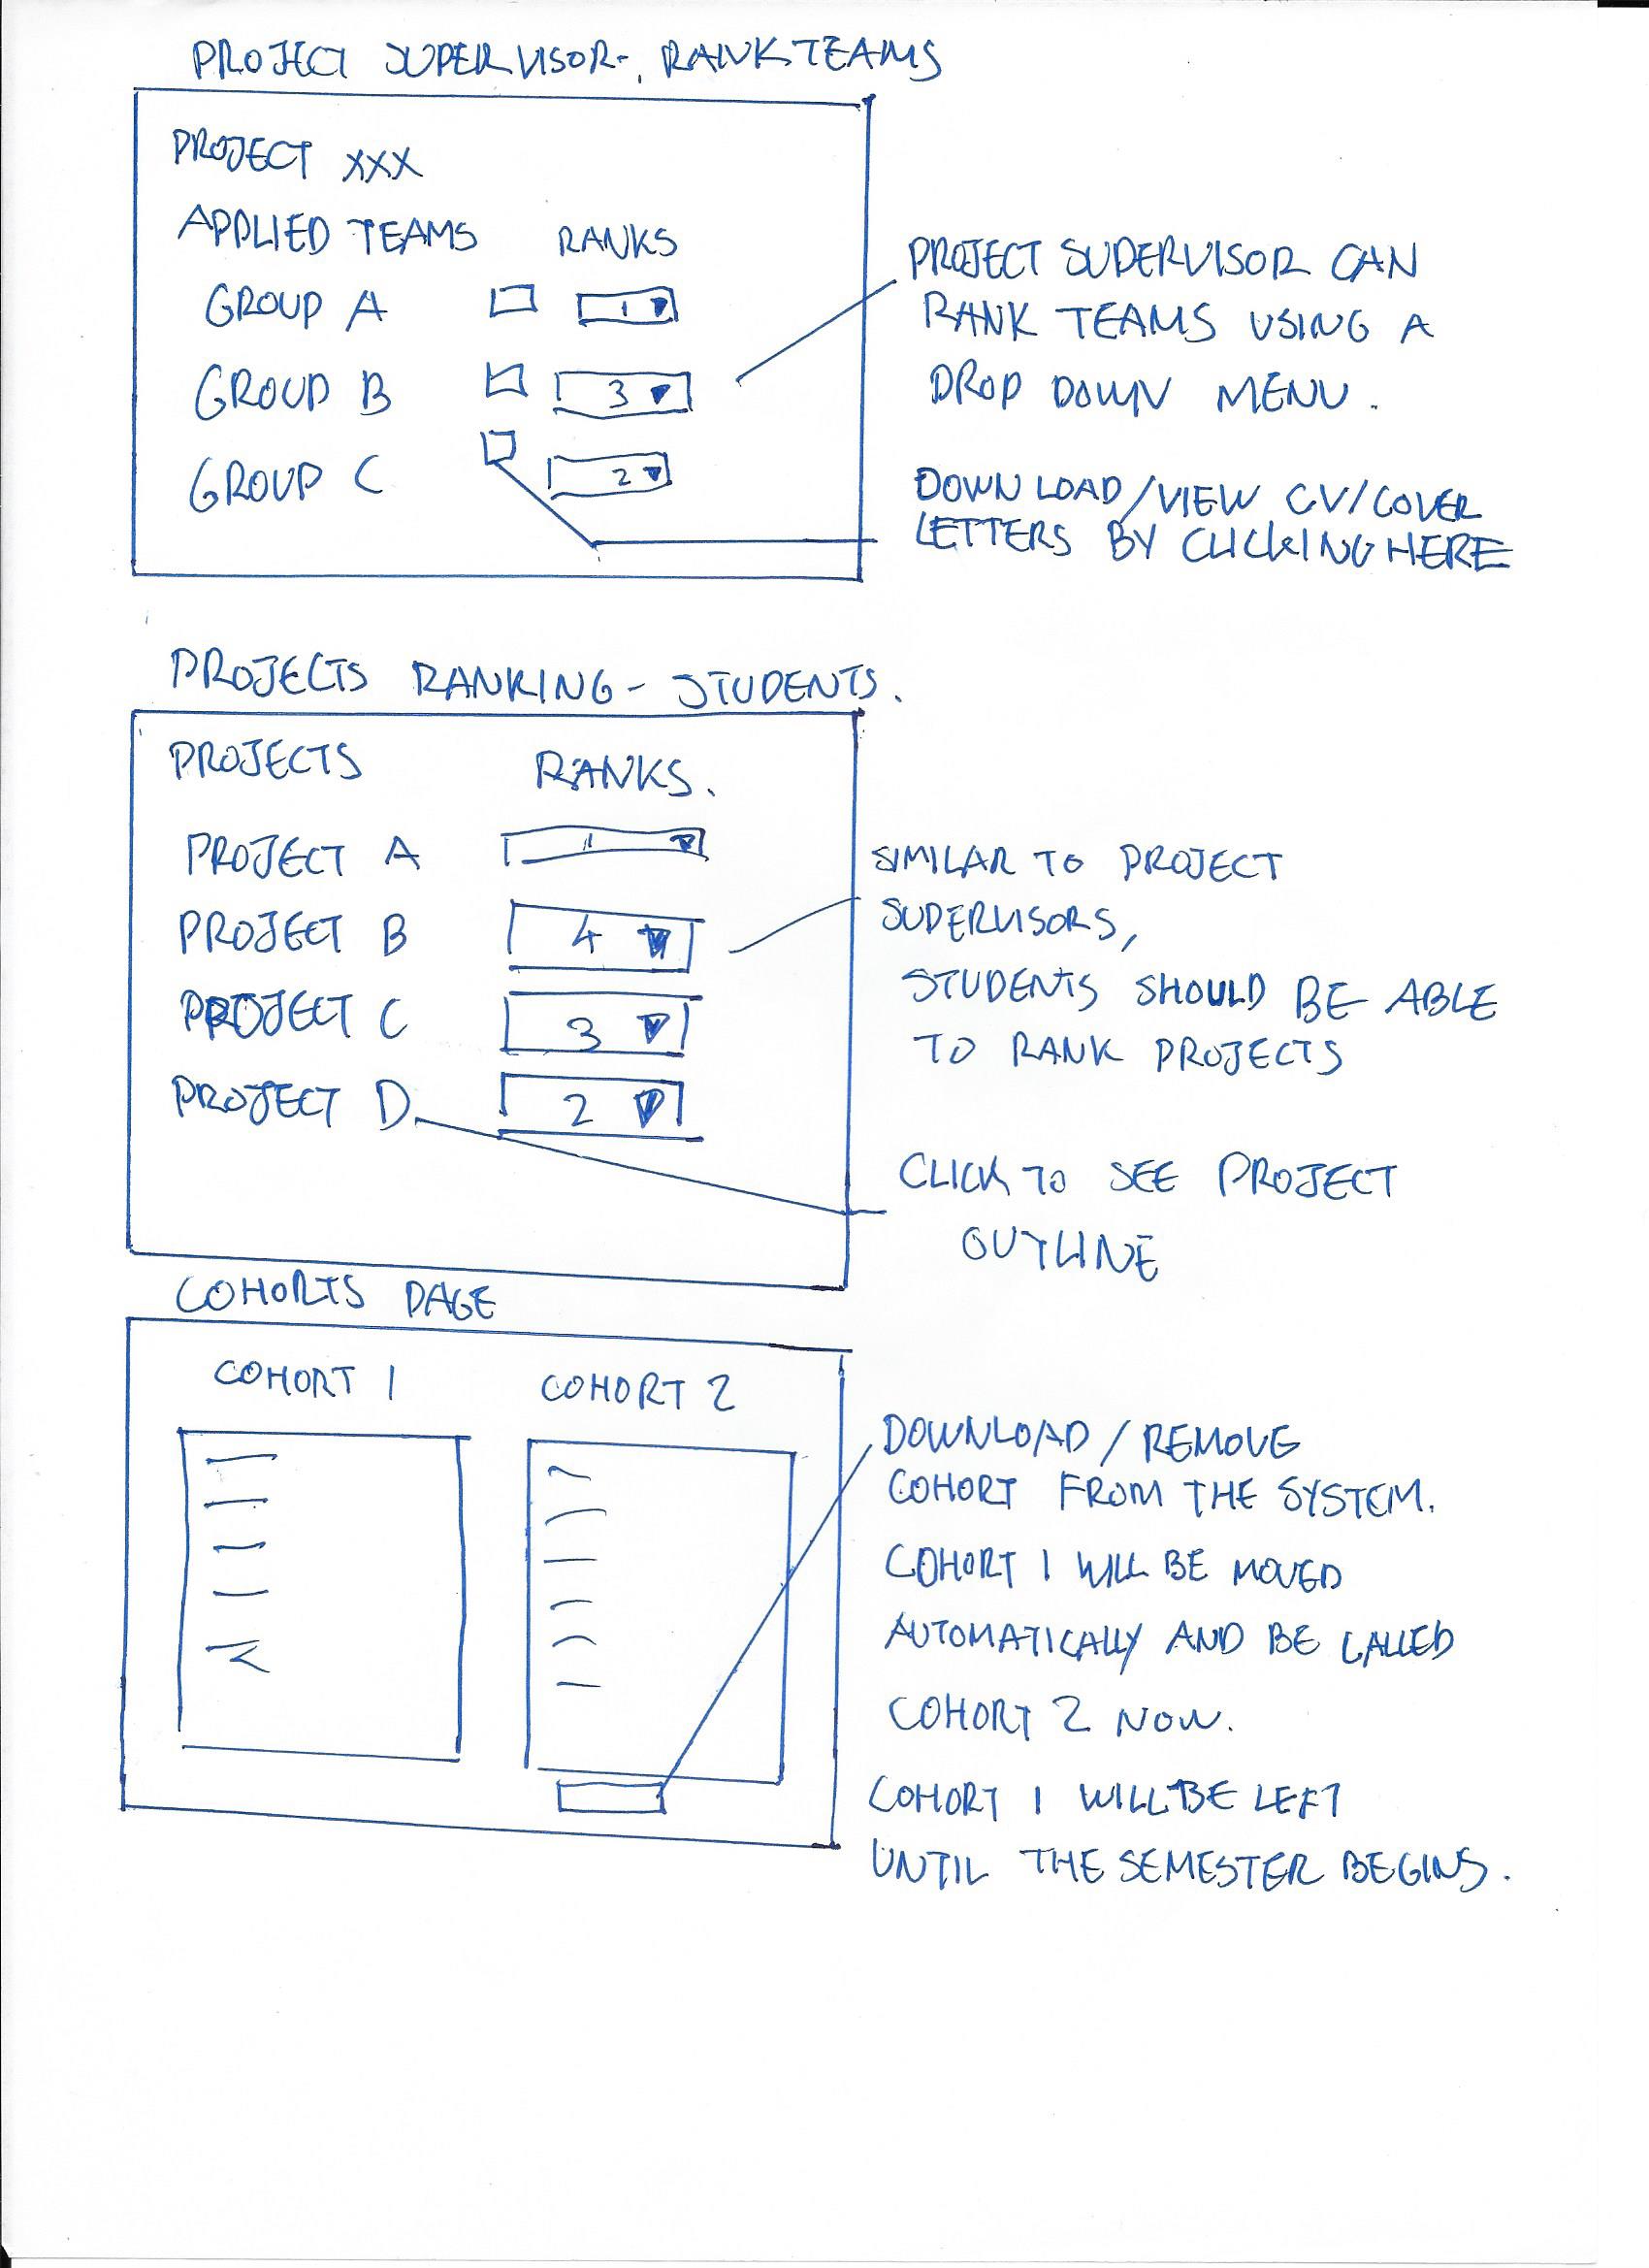 PROJECT SUPERVISOR - RANK TEAMS
PROJECT XXX
APPLIED TEAMS RANKS
GROUP A 1
GROUP B 3
GROUP C 2
PROJECT SUPERVISOR CAN
RANK TEAMS USING A
DROP DOWN MENU.
DOWNLOAD/VIEW CV/COVER
LETTERS BY CLICKING HERE
PROJECTS RANKING - STUDENTS.
PROJECTS RANKS.
PROJECT A 1
PROJECT B 4
PROJECT C 3
PROJECT D 2
SIMILAR TO PROJECT
SUPERVISORS,
STUDENTS SHOULD BE ABLE
TO RANK PROJECTS
CLICK TO SEE PROJECT
OUTLINE
COHORTS PAGE
COHORT 1 COHORT 2
DOWNLOAD / REMOVE
COHORT FROM THE SYSTEM.
COHORT 1 WILL BE MOVED
AUTOMATICALLY AND BE CALLED
COHORT 2 NOW.
COHORT 1 WILL BE LEFT
UNTIL THE SEMESTER BEGINS.